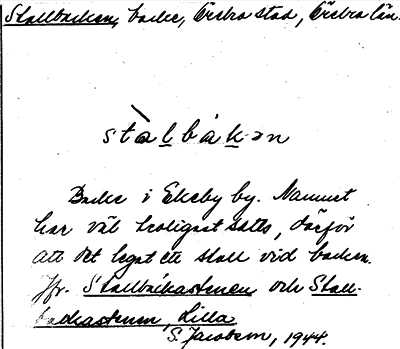 Stallbacken, backe, Örebro stad, Örebro län.
stàlbákən
Backe i Ekeby by. Namnet
har väl troligast satts, därför
att det legat ett stall vid backen.
Jfr. Stallbackastenen och Stall-
backastenen, Lilla.
S. Jacobson, 1944.